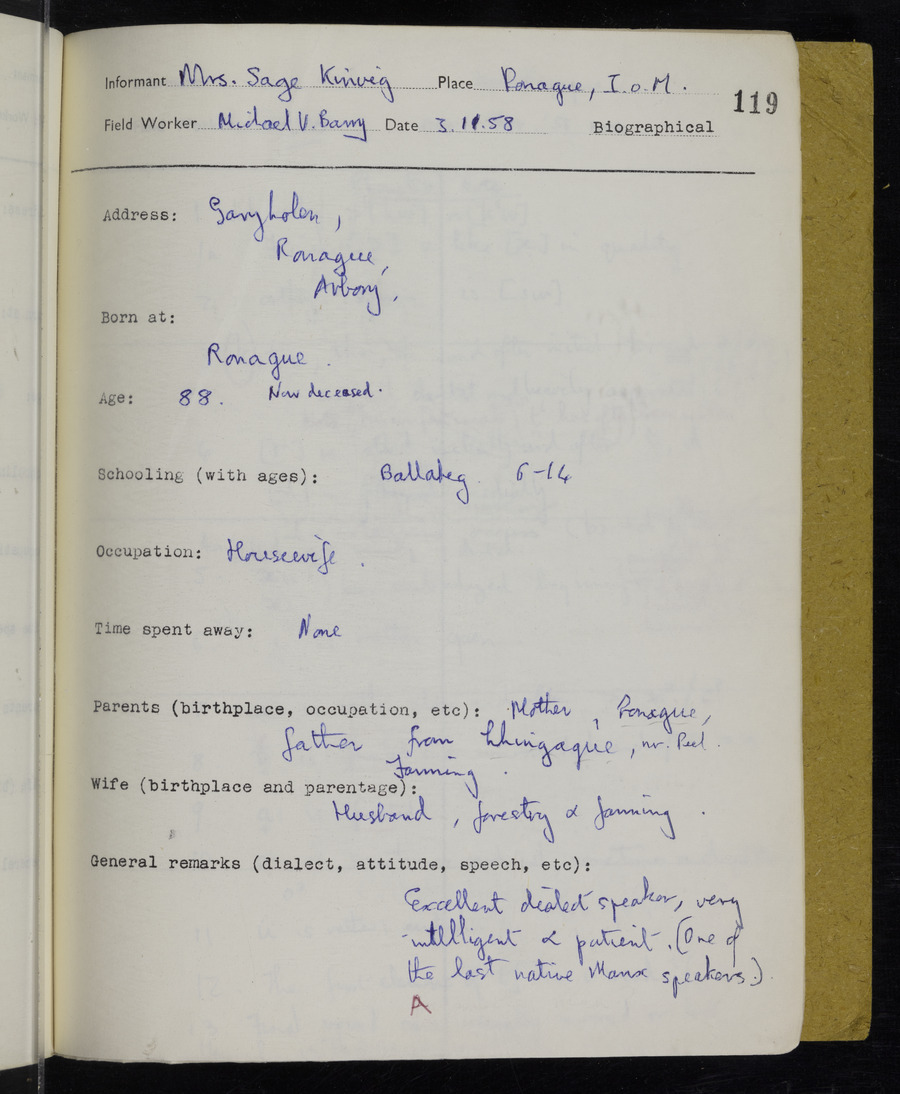 Informant Mrs. Sage Kinvig Place Ronague, I.o.M.
119
Field Worker Michael V. Barry Date 3.11.58 Biographical
Address: Garyholen,
Ronague,
Arbory,
Born at:
Ronague.
Age: 88. Now deceased.
Schooling (with ages): Ballabeg. 6-14
Occupation: Housewife.
Time spent away: None
Parents (birthplace, occupation, etc): Mother, Ronague,
father from Lhingague, nr. Peel.
Farming.
Wife (birthplace and parentage):
Husband, forestry & farming.
General remarks (dialect, attitude, speech, etc):
Excellent dialect speaker, very
intelligent & patient. (One of
the last native Manx speakers.)
A